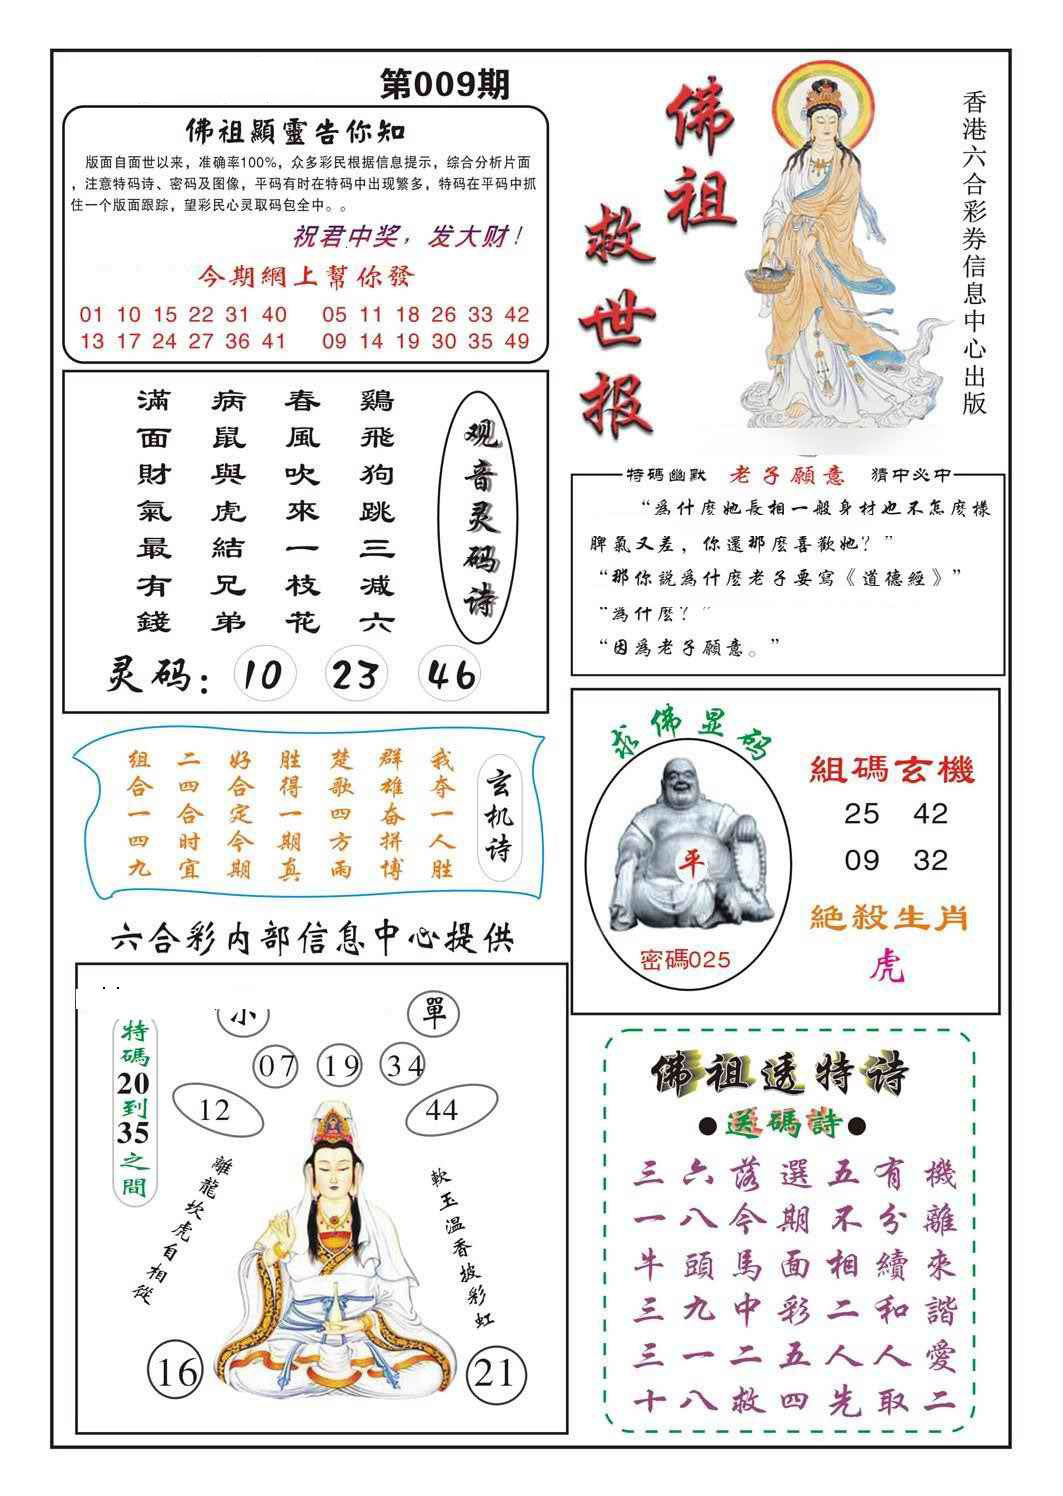 第009期
佛祖顯靈告你知
版面自面世以来，准确率100%，众多彩民根据信息提示，综合分析片面
，注意特码诗、密码及图像，平码有时在特码中出现繁多，特码在平码中抓
住一个版面跟踪，望彩民心灵取码包全中。。
祝君中奖，发大财！
今期網上幫你發
01 10 15 22 31 40 05 11 18 26 33 42
13 17 24 27 36 41 09 14 19 30 35 49
佛祖
救世报
香港六合彩券信息中心出版
观音灵码诗
鷄飛狗跳三減六
春風吹來一枝花
病鼠與虎結兄弟
滿面財氣最有錢
灵码：10 23 46
特碼幽默 老子願意 猜中必中
“爲什麽她長相一般身材也不怎麽樣
脾氣又差，你還那麽喜歡她？”
“那你説爲什麽老子要寫《道德經》”
“爲什麽？”
“因爲老子願意。”
玄机诗
我夺一人胜
群雄奋拼博
楚歌四方雨
胜得一期真
好合定今期
二四合时宜
组合一四九
求佛显码
平
密碼025
組碼玄機
25 42
09 32
絕殺生肖
虎
六合彩内部信息中心提供
單
特碼20到35之間
07 19 34
12 44
離龍坎虎自相從
軟玉溫香披彩虹
16 21
佛祖透特诗
●送碼詩●
三六落選五有機
一八今期不分離
牛頭馬面相續來
三九中彩二和諧
三一二五人人愛
十八救四先取二